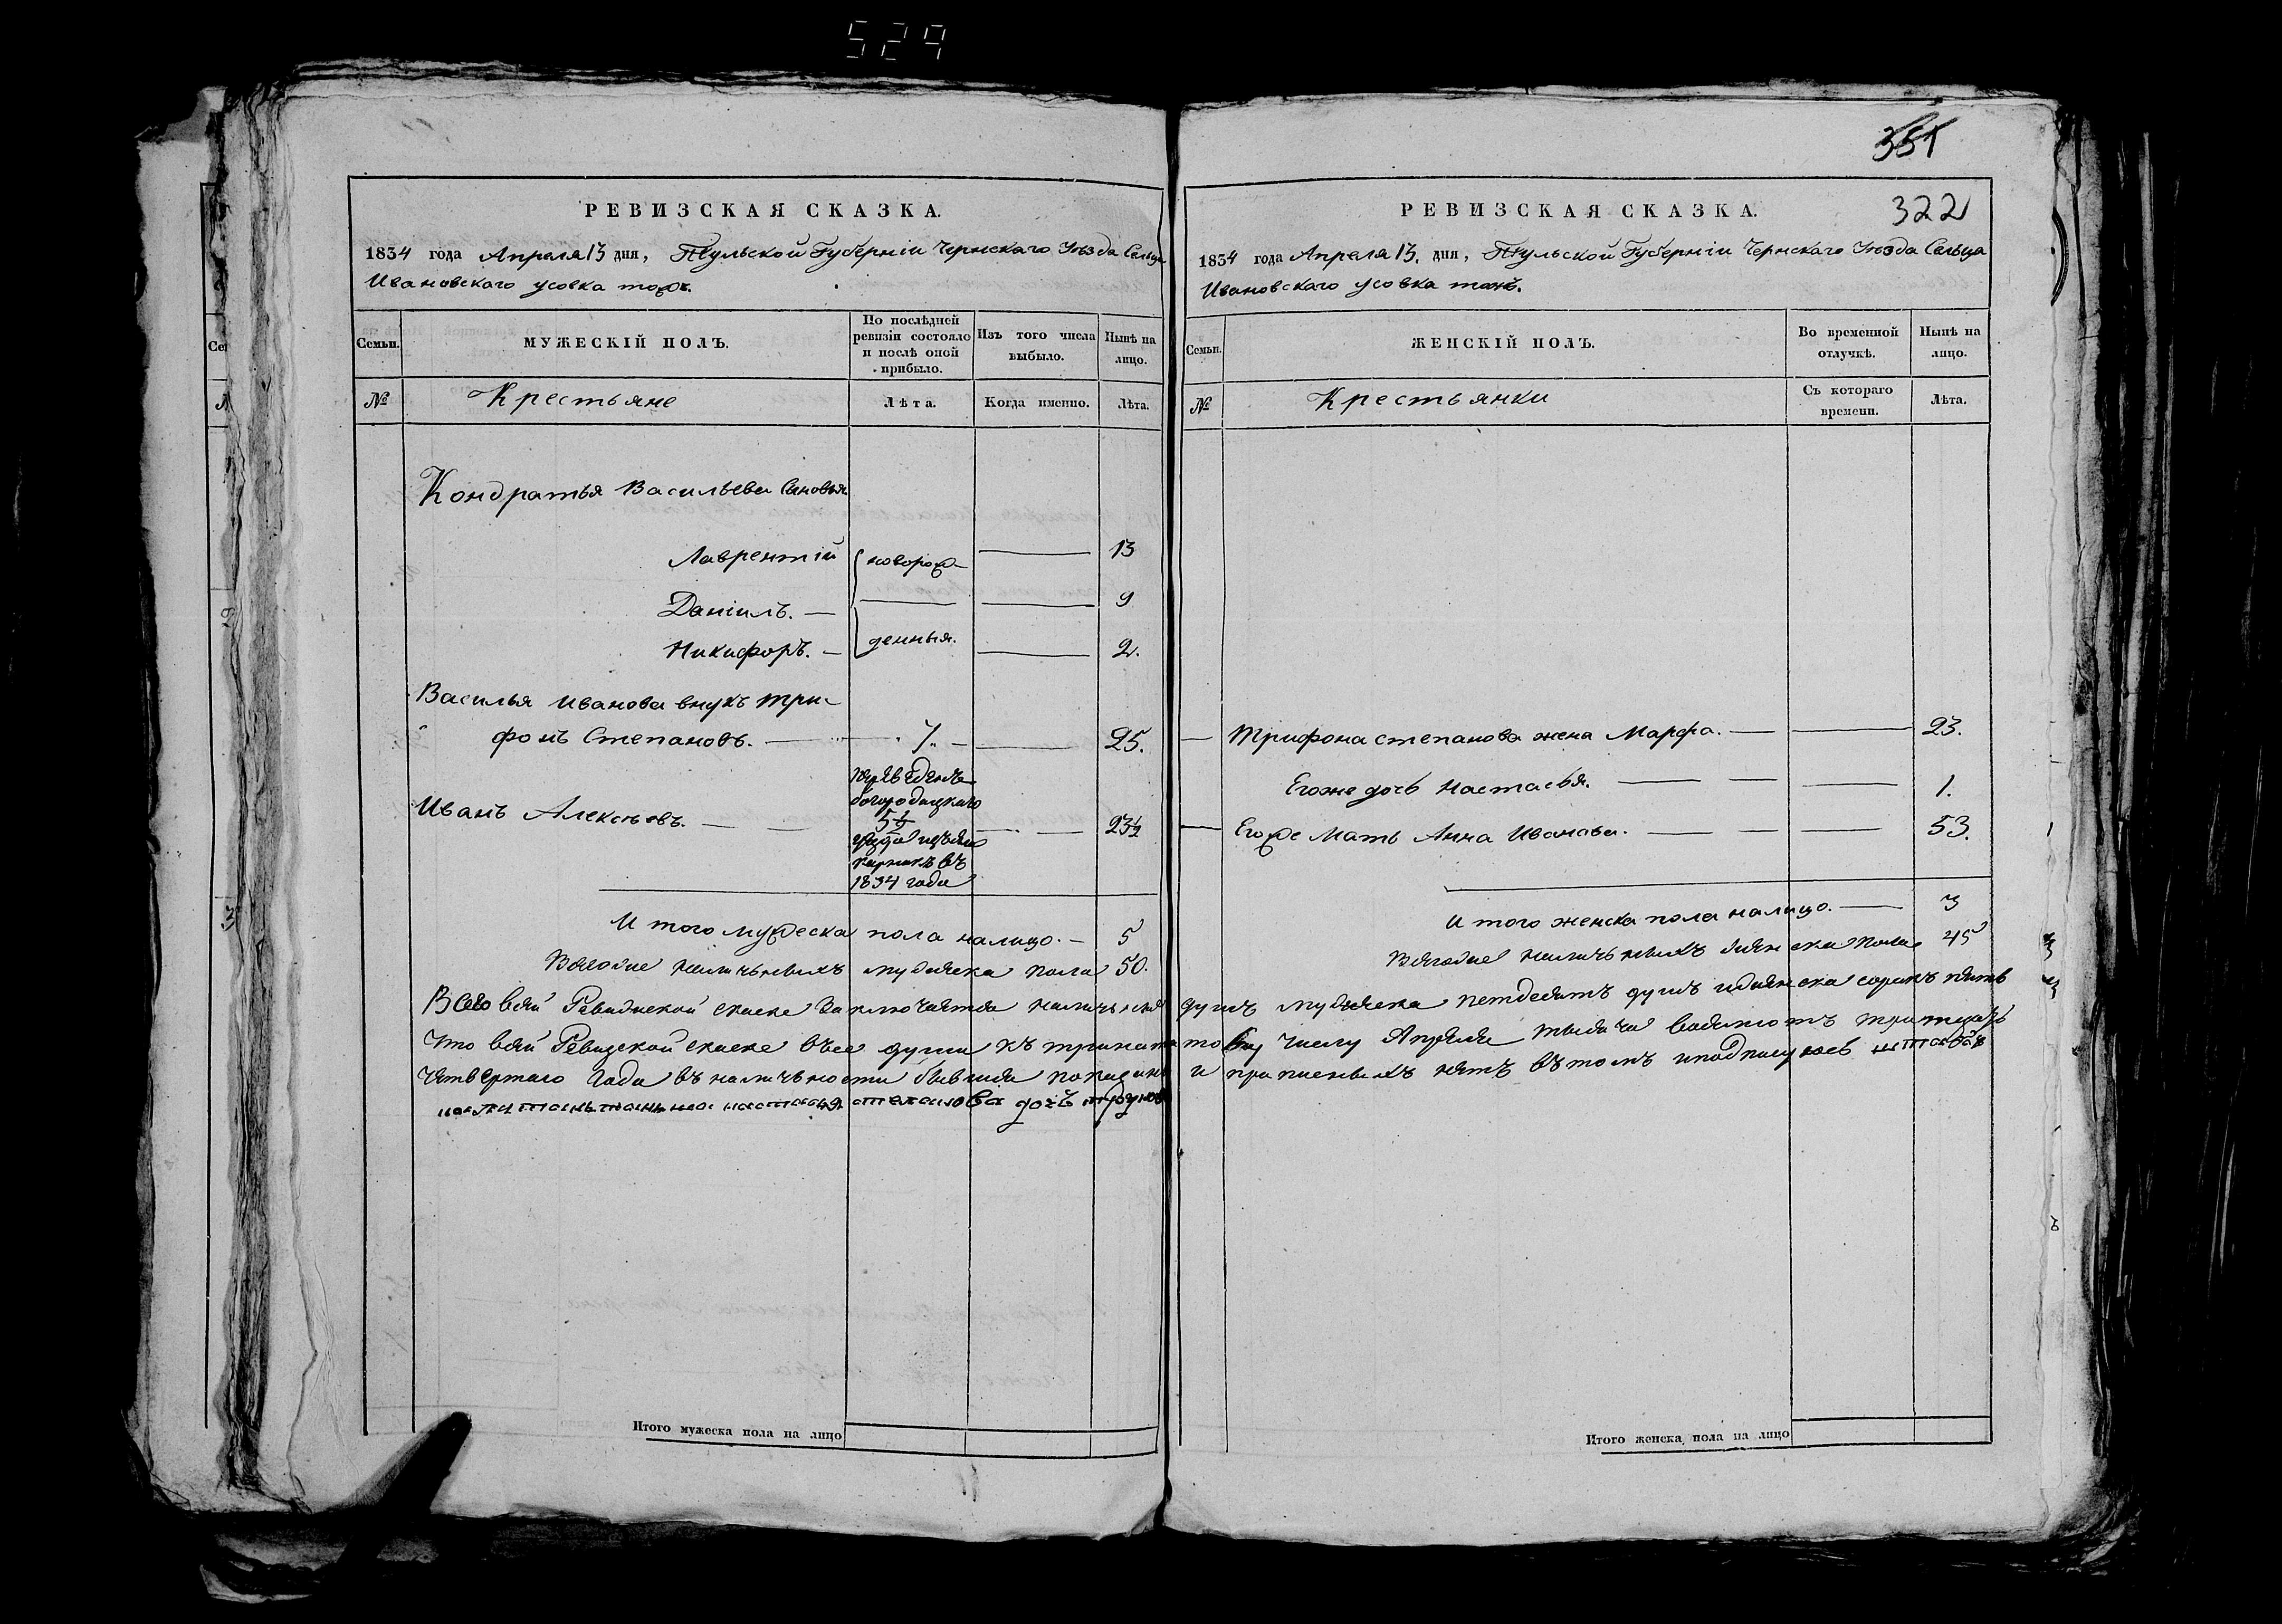 529
351
РЕВИЗСКАЯ СКАЗКА.
1834 года Апреля 13 дня, Тульской Губерніи Чернскаго Уѣзда Сельца
Ивановскаго усовка тожъ.
Семьи.
МУЖЕСКІЙ ПОЛЪ.
По послѣдней ревизіи состояло и послѣ оной прибыло.
Изъ того числа выбыло.
Нынѣ на лицо.
№
Крестьяне
Лѣта.
Когда именно.
Лѣта.
Кондратья Васильева Сыновья.
Лаврентій новорож- 13
Даніилъ. — 9
Никифоръ. — денныя. 2.
Василья Иванова внукъ три-
фонъ Степановъ. — 7. — 25.
Иванъ Алексѣевъ. — 23½
богородицкаго
5½
1834 года
И того мужеска пола налицо. — 5
наличьныхъ мужеска пола 50.
РЕВИЗСКАЯ СКАЗКА.
322
1834 года Апреля 13. дня, Тульской Губерніи Чернскаго Уѣзда Сельца
Ивановскаго усовка тожъ.
Семьи.
ЖЕНСКІЙ ПОЛЪ.
Во временной отлучкѣ.
Нынѣ на лицо.
№
Крестьянки
Съ котораго времени.
Лѣта.
— Трифона степанова жена Марфа. — 23.
Егоже дочь Настасья. — 1.
— Егоже Мать Анна Иванова. — 53.
И того женска пола налицо. — 3
наличьныхъ женска пола 45
Всего всей Ревизской скаске заключаетца наличьныя душъ мужеска петдесятъ душъ иженска сорокъ пять
Что всей Ревизской скаске въсе души къ тринатцатому числу Апреля тысяча восемсотъ тритцать
четвертаго Года въ наличьности бывшия показаны и прописныхъ нетъ втомъ иподписуюсь
Итого мужеска пола на лицо
Итого женска пола на лицо